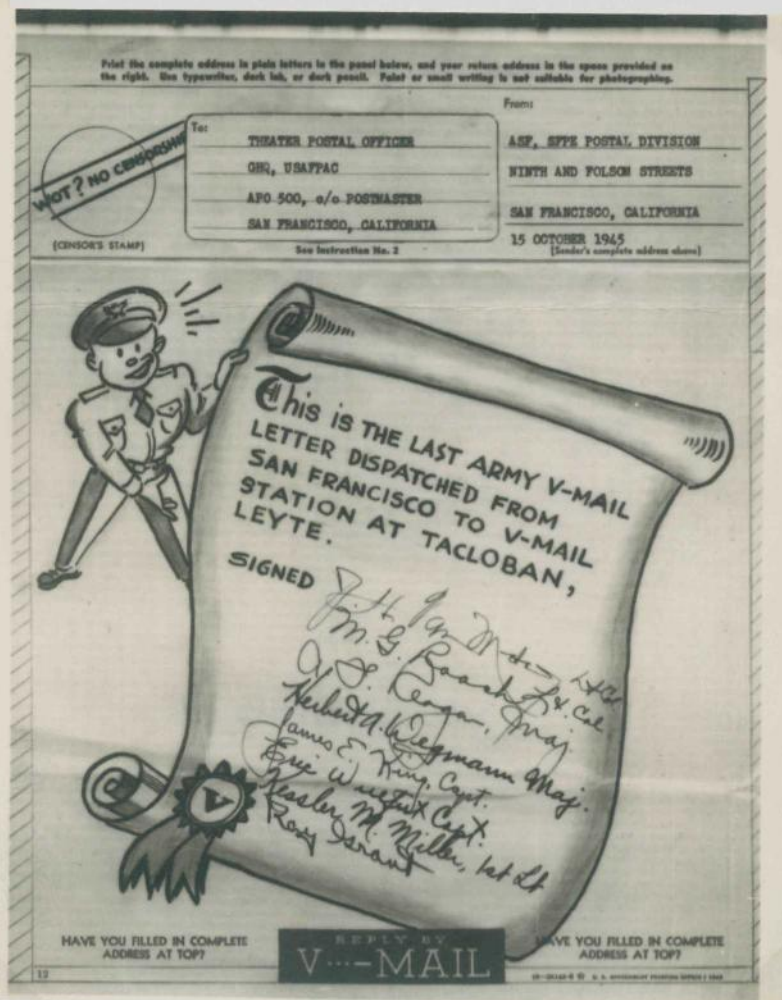 Print the complete address in plain letters in the panel below, and your return address in the space provided on
the right. Use typewriter, dark ink, or dark pencil. Faint or small writing is not suitable for photographing.
WOT? NO CENSORSHIP
(CENSOR'S STAMP)
To:
THEATER POSTAL OFFICER
GHQ, USAFPAC
APO 500, c/o POSTMASTER
SAN FRANCISCO, CALIFORNIA
See Instruction No. 2
From:
ASF, SFPE POSTAL DIVISION
NINTH AND FOLSOM STREETS
SAN FRANCISCO, CALIFORNIA
15 OCTOBER 1945
(Sender's complete address above)
This is THE LAST ARMY V-MAIL
LETTER DISPATCHED FROM
SAN FRANCISCO TO V-MAIL
STATION AT TACLOBAN,
LEYTE.
SIGNED
Lt Col
M. G. Roach Lt. Col.
Reagan, Maj.
Herbert A. Wegmann Maj.
James E. King, Capt.
Eric W Capt.
Kessler M. Miller, 1st Lt
Roy Israul
V
HAVE YOU FILLED IN COMPLETE
ADDRESS AT TOP?
REPLY BY
V···—MAIL
HAVE YOU FILLED IN COMPLETE
ADDRESS AT TOP?
12
U. S. GOVERNMENT PRINTING OFFICE